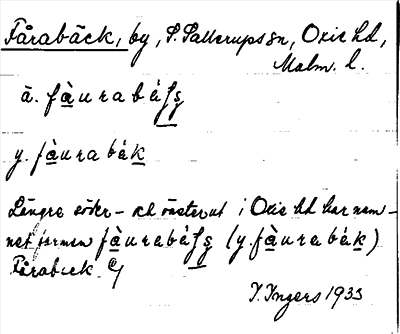 Fårabäck, by, S. Sallerups sn, Oxie hd,
Malm. l.
ä. fàurabáſs
y. fàurabák
Längre söder- och österut i Oxie hd har nam-
net formen fàurabáſs (y. fàurabák)
Fårabäck.
I. Ingers 1933